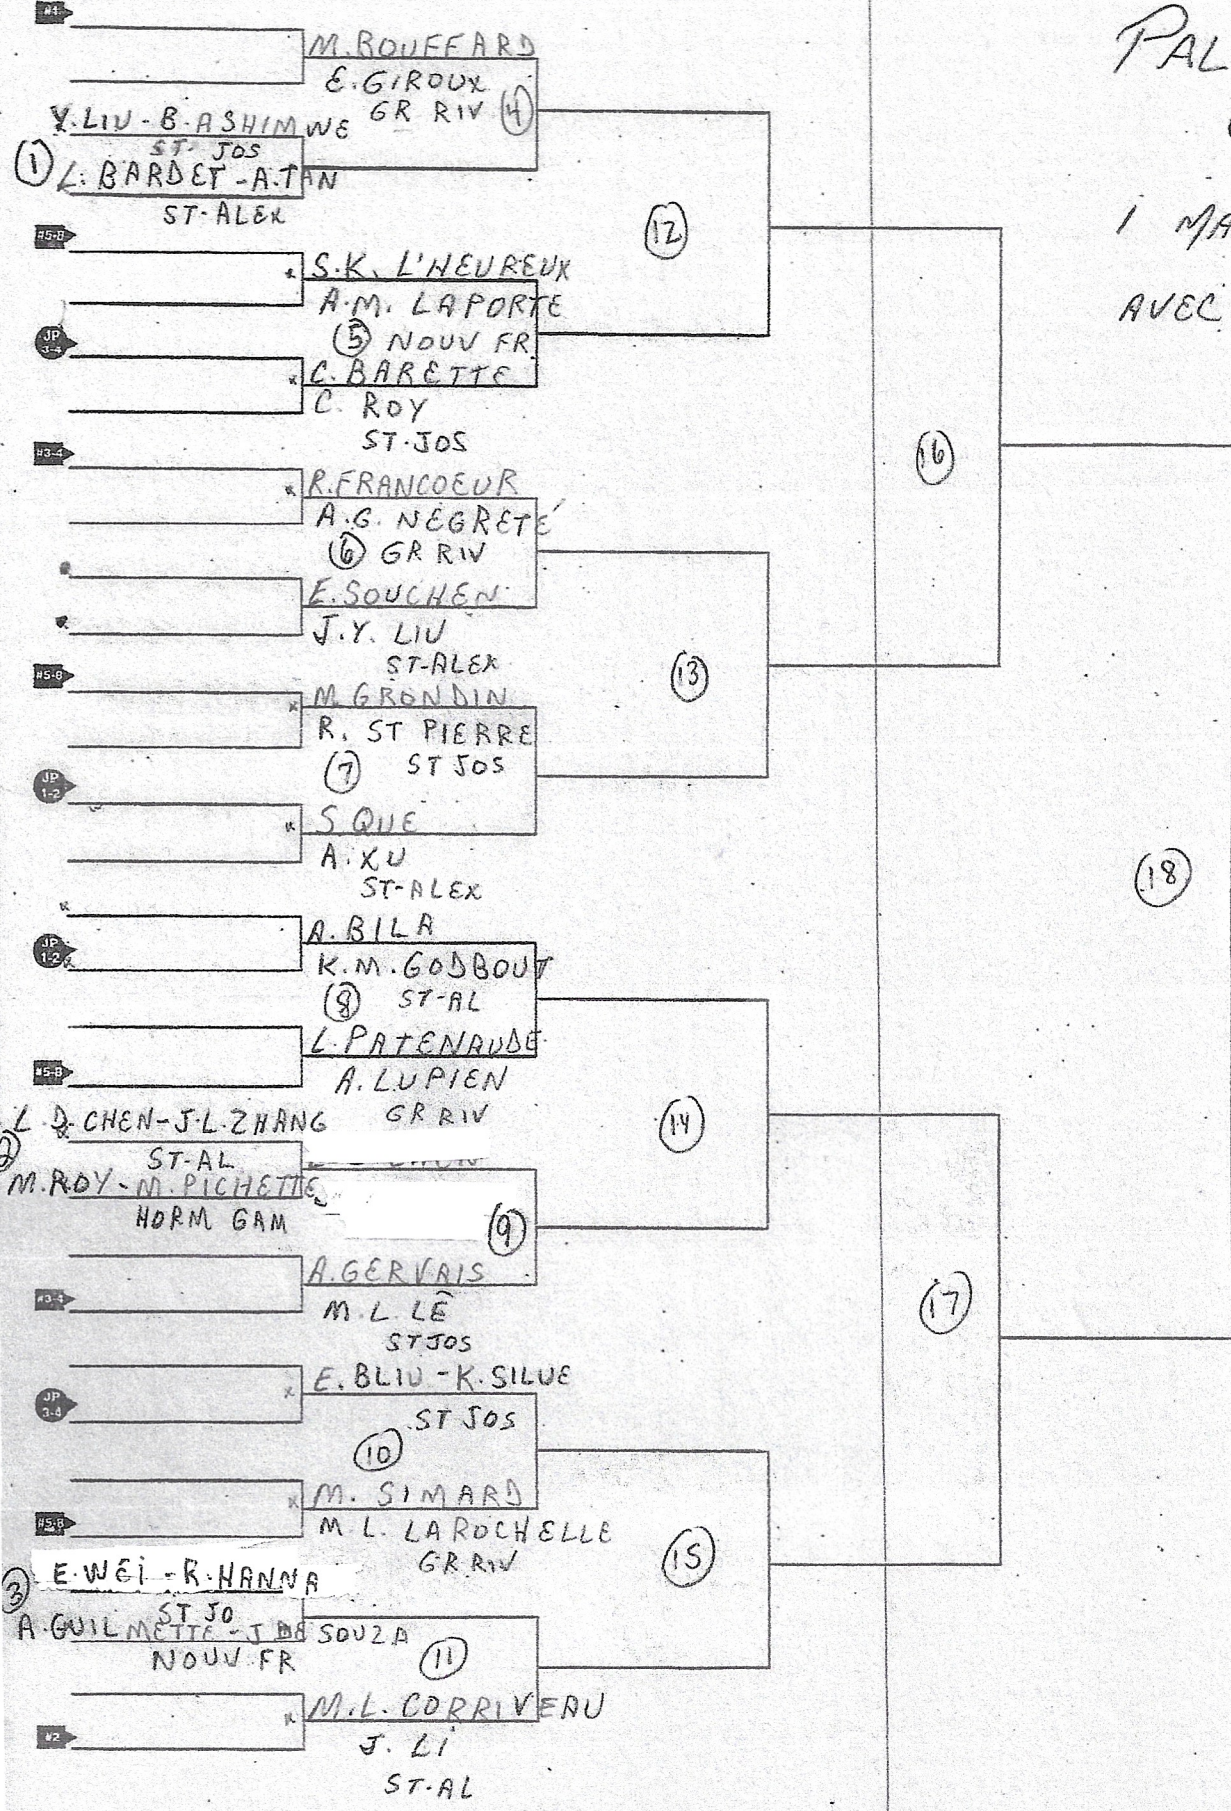 #1
M. BOUFFARD
PAL
E. GIROUX
GR RIV 4
Y. LIU - B. ASHIMWE
ST- JOS
1 L. BARDET - A. TAN
ST-ALEX
1 MA
12
#5-8
S.K. L'HEUREUX
A.M. LAPORTE
AVEC
5 NOUV FR
JP
3-4
C. BARETTE
C. ROY
ST-JOS
#3-4
16
R. FRANCOEUR
A.G. NEGRETÉ
6 GR RIV
E. SOUCHEN
J.Y. LIU
ST-ALEX
13
#5-8
M. GRONDIN
R. ST PIERRE
7 ST JOS
JP
1-2
S. QUE
A. XU
ST-ALEX
18
A. BILA
JP
1-2
K.M. GODBOUT
8 ST-AL
L. PATENAUDE
#5-8
A. LUPIEN
GR RIV
L. D. CHEN - J.L. ZHANG
14
2
ST-AL
M. ROY - M. PICHETTE
HORM GAM
9
A. GERVAIS
#3-4
M. L. LÊ
ST JOS
17
E. BLIU - K. SILUE
JP
3-4
ST JOS
10
M. SIMARD
#5-8
M. L. LAROCHELLE
GR RIV
15
3 E. WEI - R. HANNA
ST JO
A. GUILMETTE - J DE SOUZA
NOUV FR
11
M.L. CORRIVEAU
#2
J. LI
ST-AL